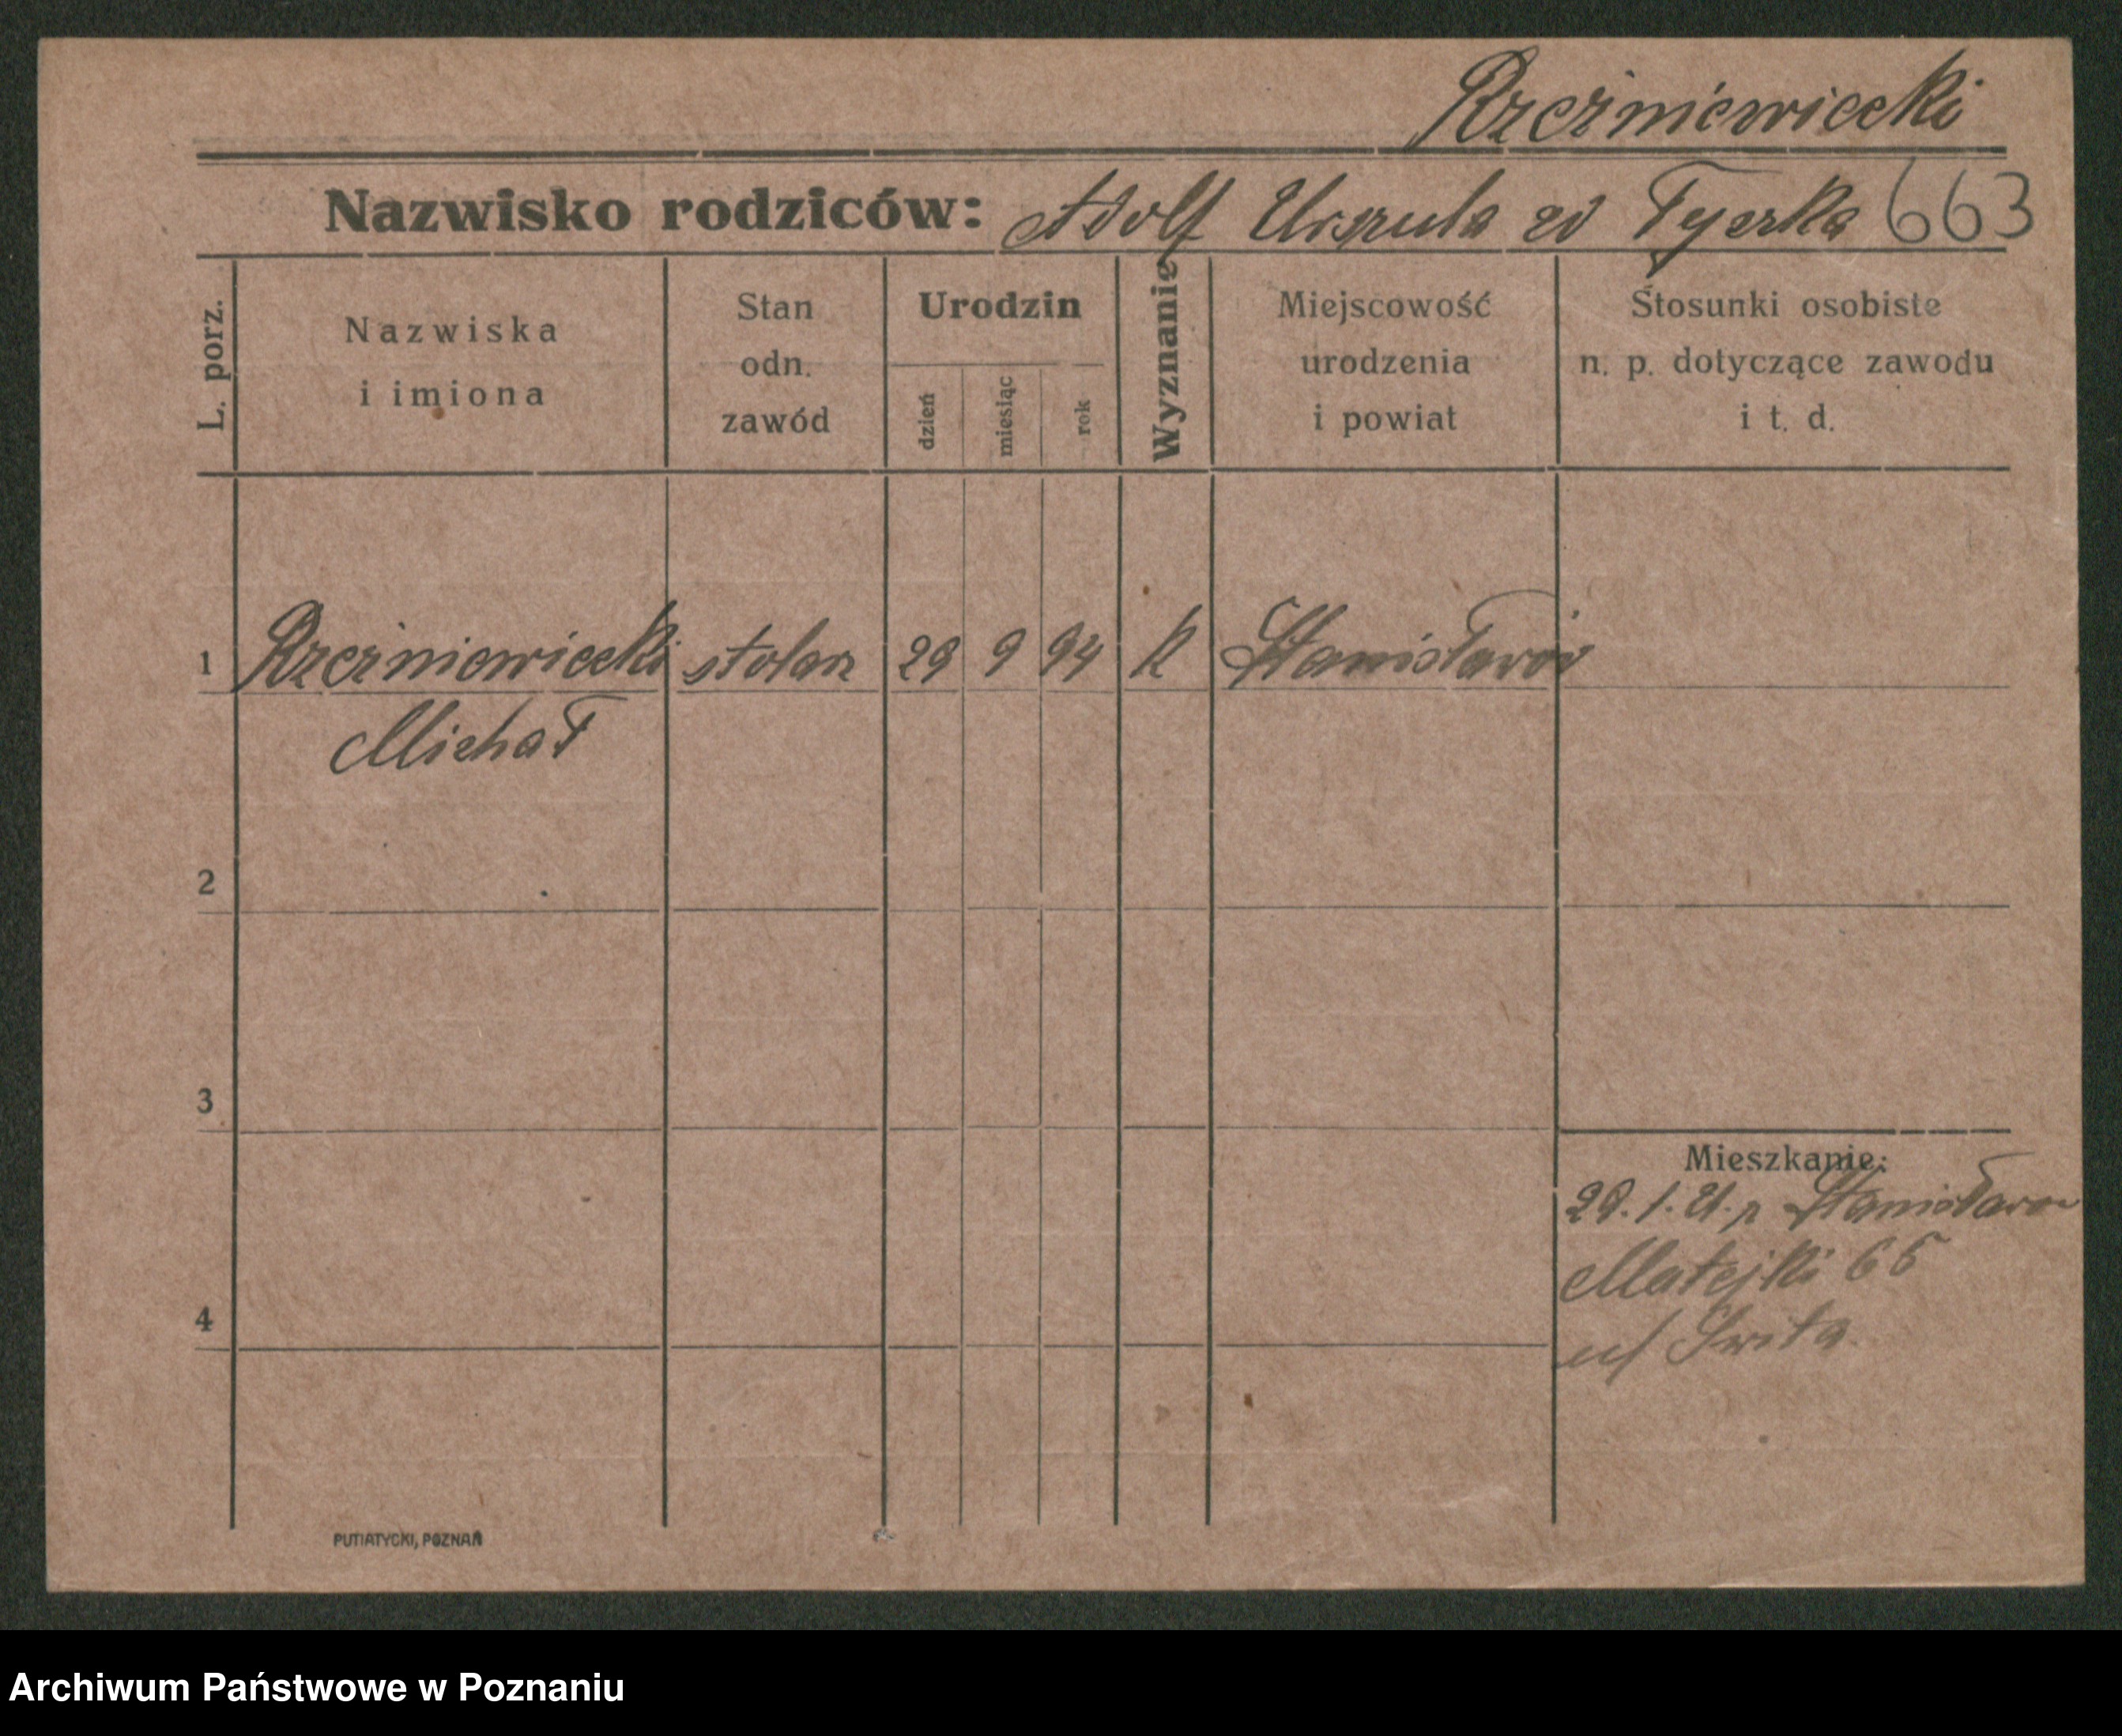 Rzeźniewiecki
Nazwisko rodziców: Adolf Urszula zd Tyszka 663
L. porz.
Nazwiska
i imiona
Stan
odn.
zawód
Urodzin
dzień
miesiąc
rok
Wyznanie
Miejscowość
urodzenia
i powiat
Stosunki osobiste
n. p. dotyczące zawodu
i t. d.
1 Rzeźniewiecki stolarz 29 9 94 K Stanisławów
Michał
2
3
Mieszkanie:
Stanisławów
Matejki 65
4
PUTIATYCKI, POZNAŃ
Archiwum Państwowe w Poznaniu